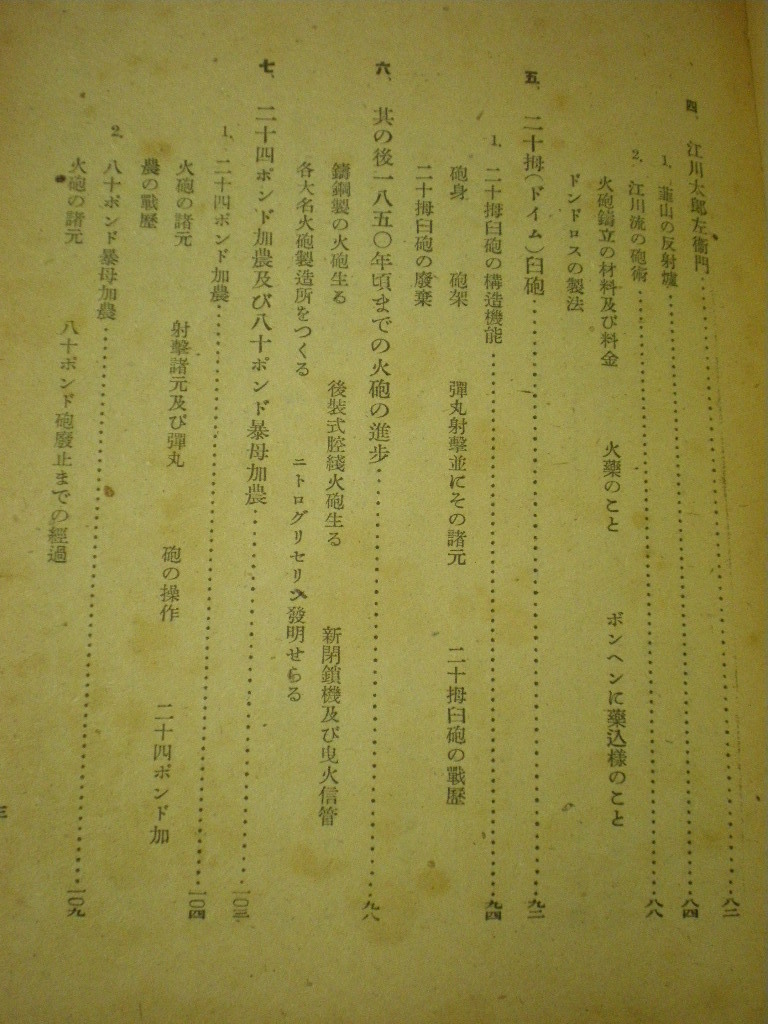 四、江川太郎左衞門……………………八二
1、韮山の反射爐……………………八四
2、江川流の砲術……………………八八
火砲鑄立の材料及び料金　火藥のこと　ボンヘンに藥込樣のこと
ドンドロスの製法
五、二十拇(ドイム)臼砲……………………九二
1、二十拇臼砲の構造機能……………………九四
砲身　砲架　彈丸射擊並にその諸元　二十拇臼砲の戰歷
二十拇臼砲の廢棄
六、其の後一八五〇年頃までの火砲の進步……………………九八
鑄鋼製の火砲生る　後裝式腔綫火砲生る　新閉鎖機及び曳火信管
各大名火砲製造所をつくる　ニトログリセリン發明せらる
七、二十四ポンド加農及び八十ポンド暴母加農……………………一〇三
1、二十四ポンド加農……………………一〇四
火砲の諸元　射擊諸元及び彈丸　砲の操作　二十四ポンド加
農の戰歷
2、八十ポンド暴母加農……………………一〇九
火砲の諸元　八十ポンド砲廢止までの經過
三